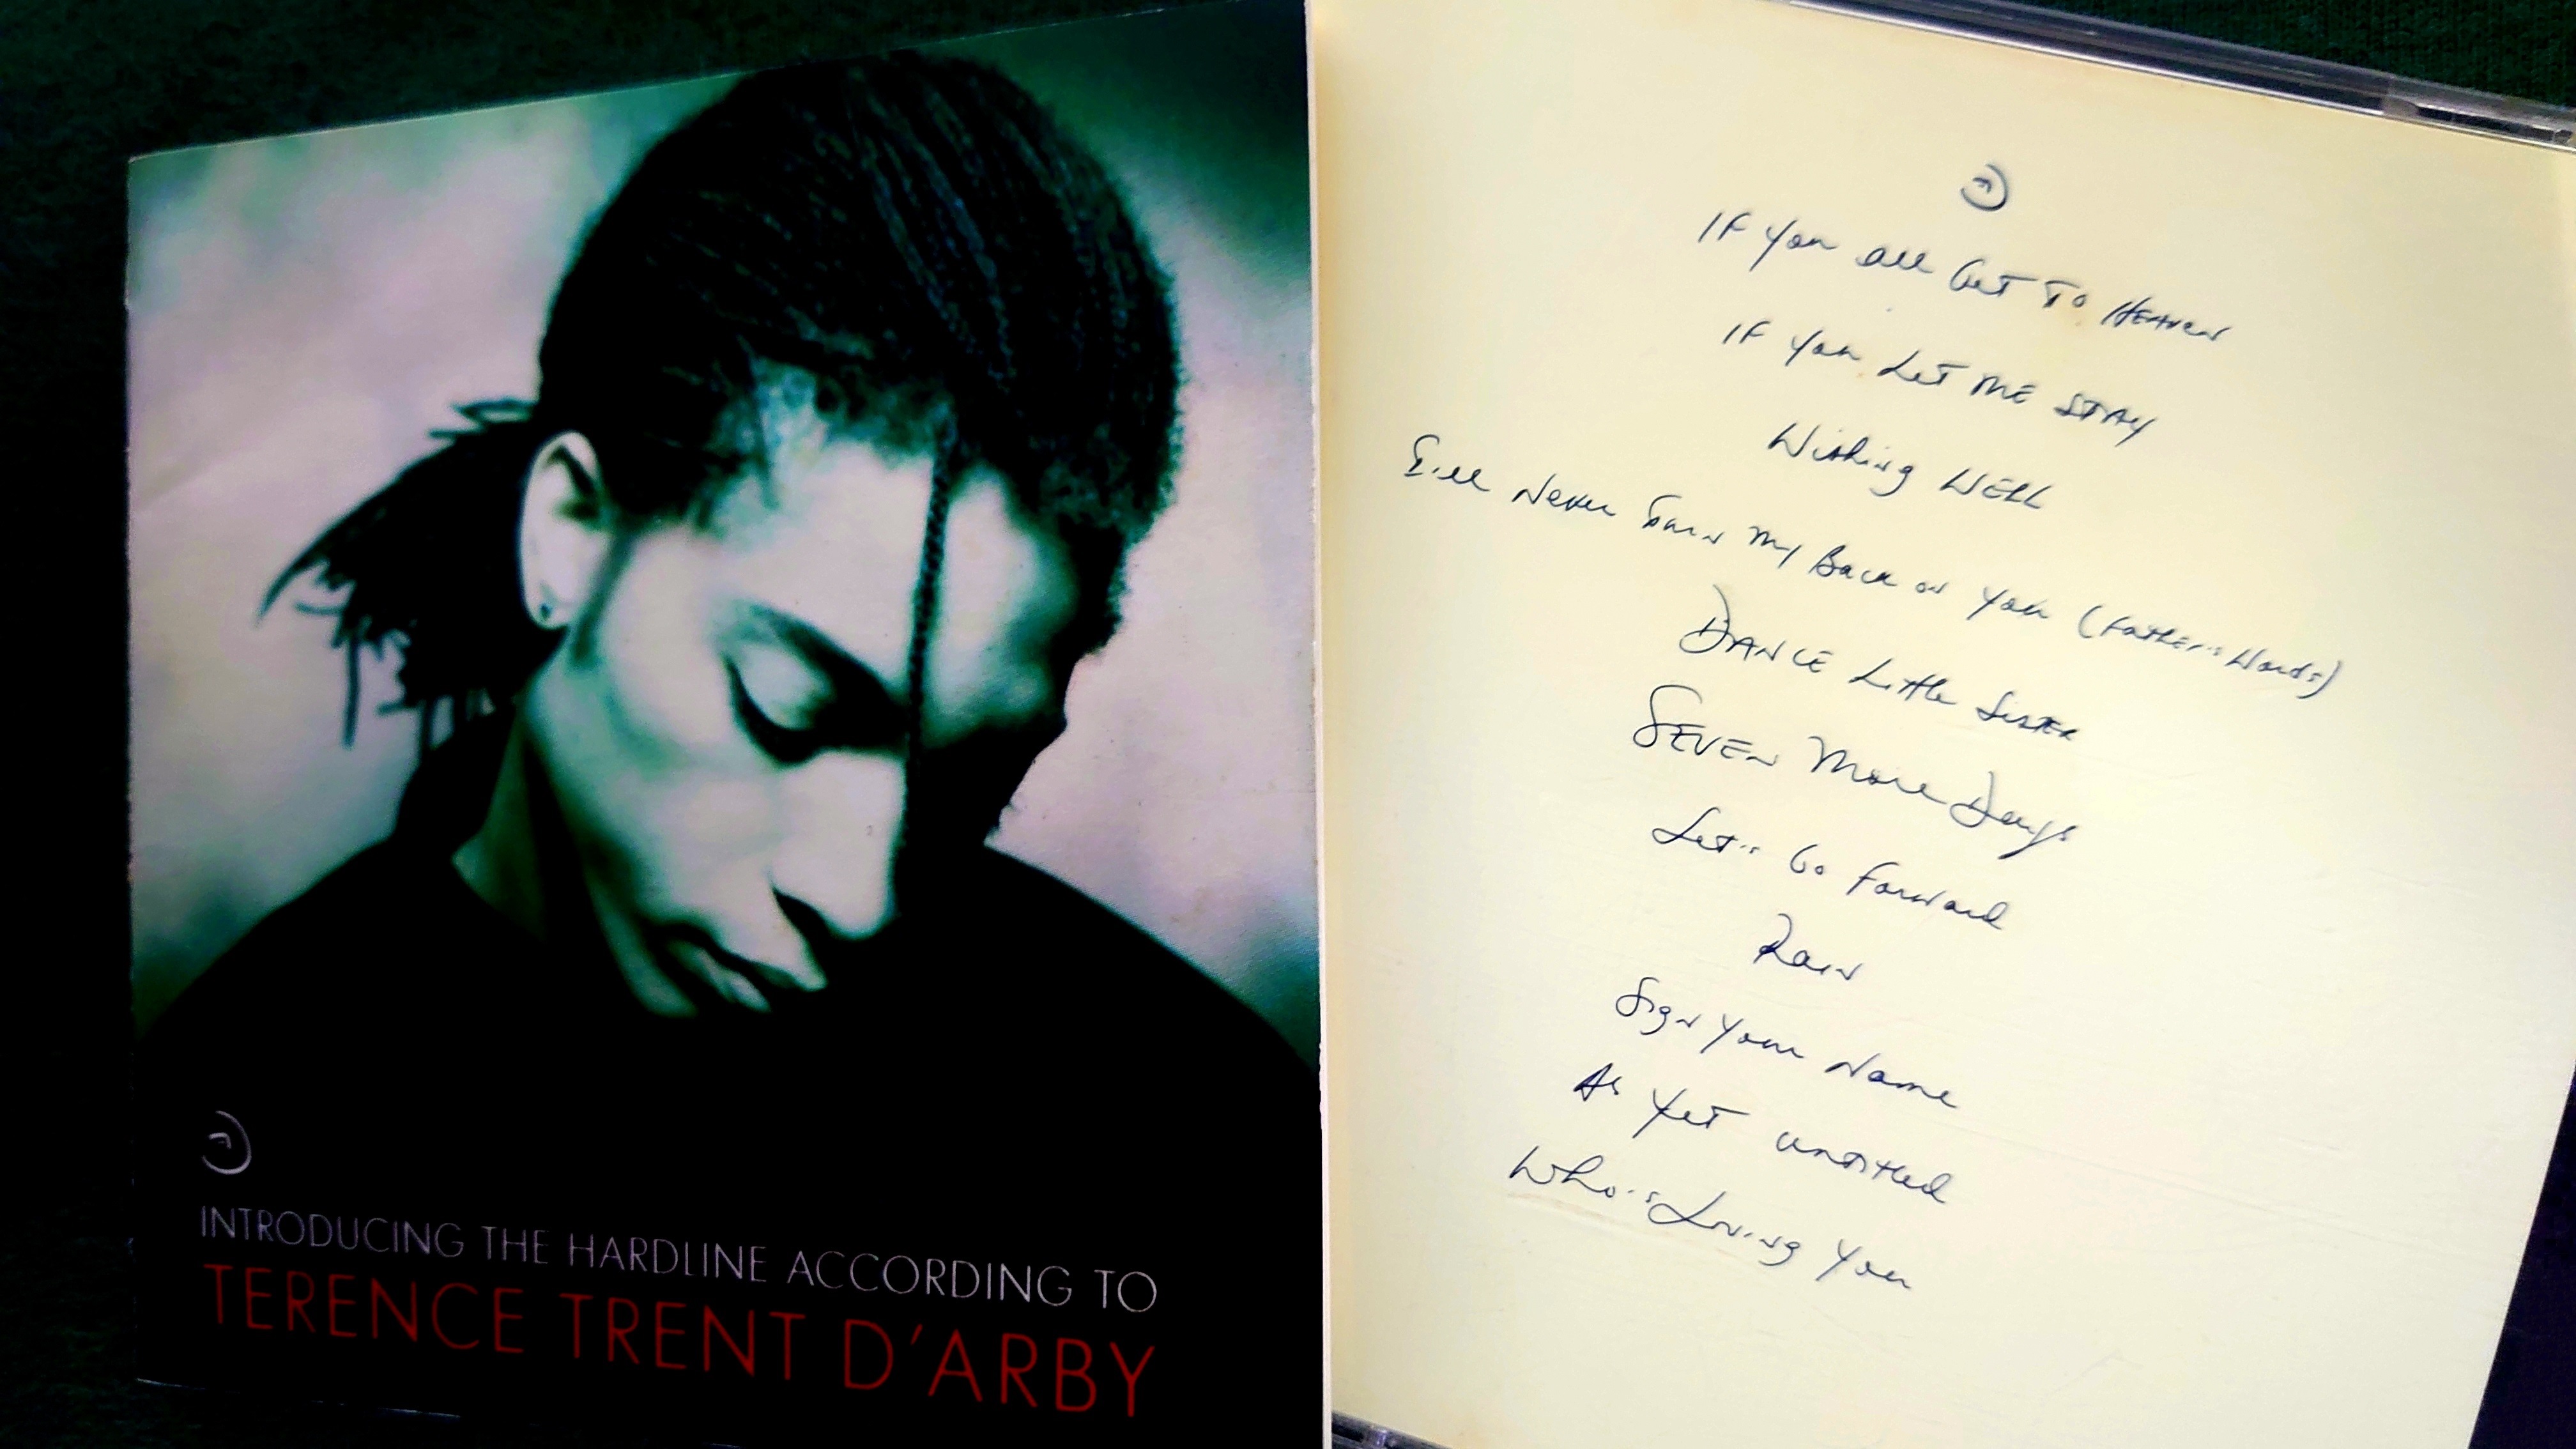 INTRODUCING THE HARDLINE ACCORDING TO
TERENCE TRENT D'ARBY
If You All Get To Heaven
If You Let Me Stay
Wishing Well
I'll Never Turn My Back on You (Father's Words)
Dance Little Sister
Seven More Days
Let's Go Forward
Rain
Sign Your Name
As Yet Untitled
Who's Loving You